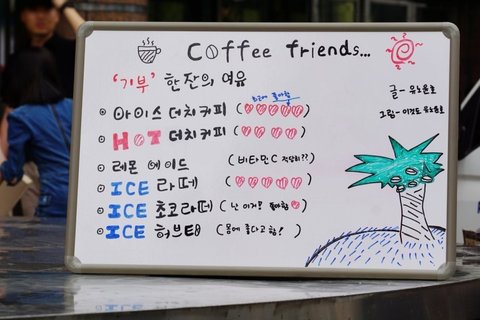 Coffee friends...
'기부' 한잔의 여유
글 - 유노윤호
그림 - 이것도 유노윤호
아이스 더치커피 (♡♡♡♡♡)
HOT 더치커피 (♡♡♡♡)
레몬 에이드 (비타민C 적당히??)
ICE 라떼 (♡♡♡♡♡)
ICE 초코라떼 (난 이거! 좋아함♡)
ICE 허브티 (몸에 좋다고 함!)